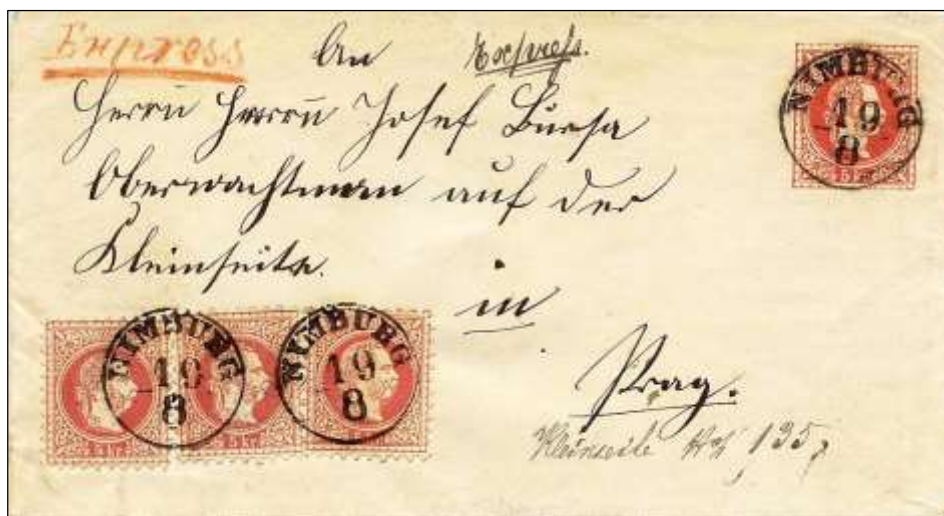 Express
An Express.
Herrn Herrn Josef Bursa
Oberwachtman auf der
Kleinseite.
in
Prag.
Kleinseite 135
NIMBURG
19
8
NIMBURG
19
8
NIMBURG
19
8
5 kr
5 kr